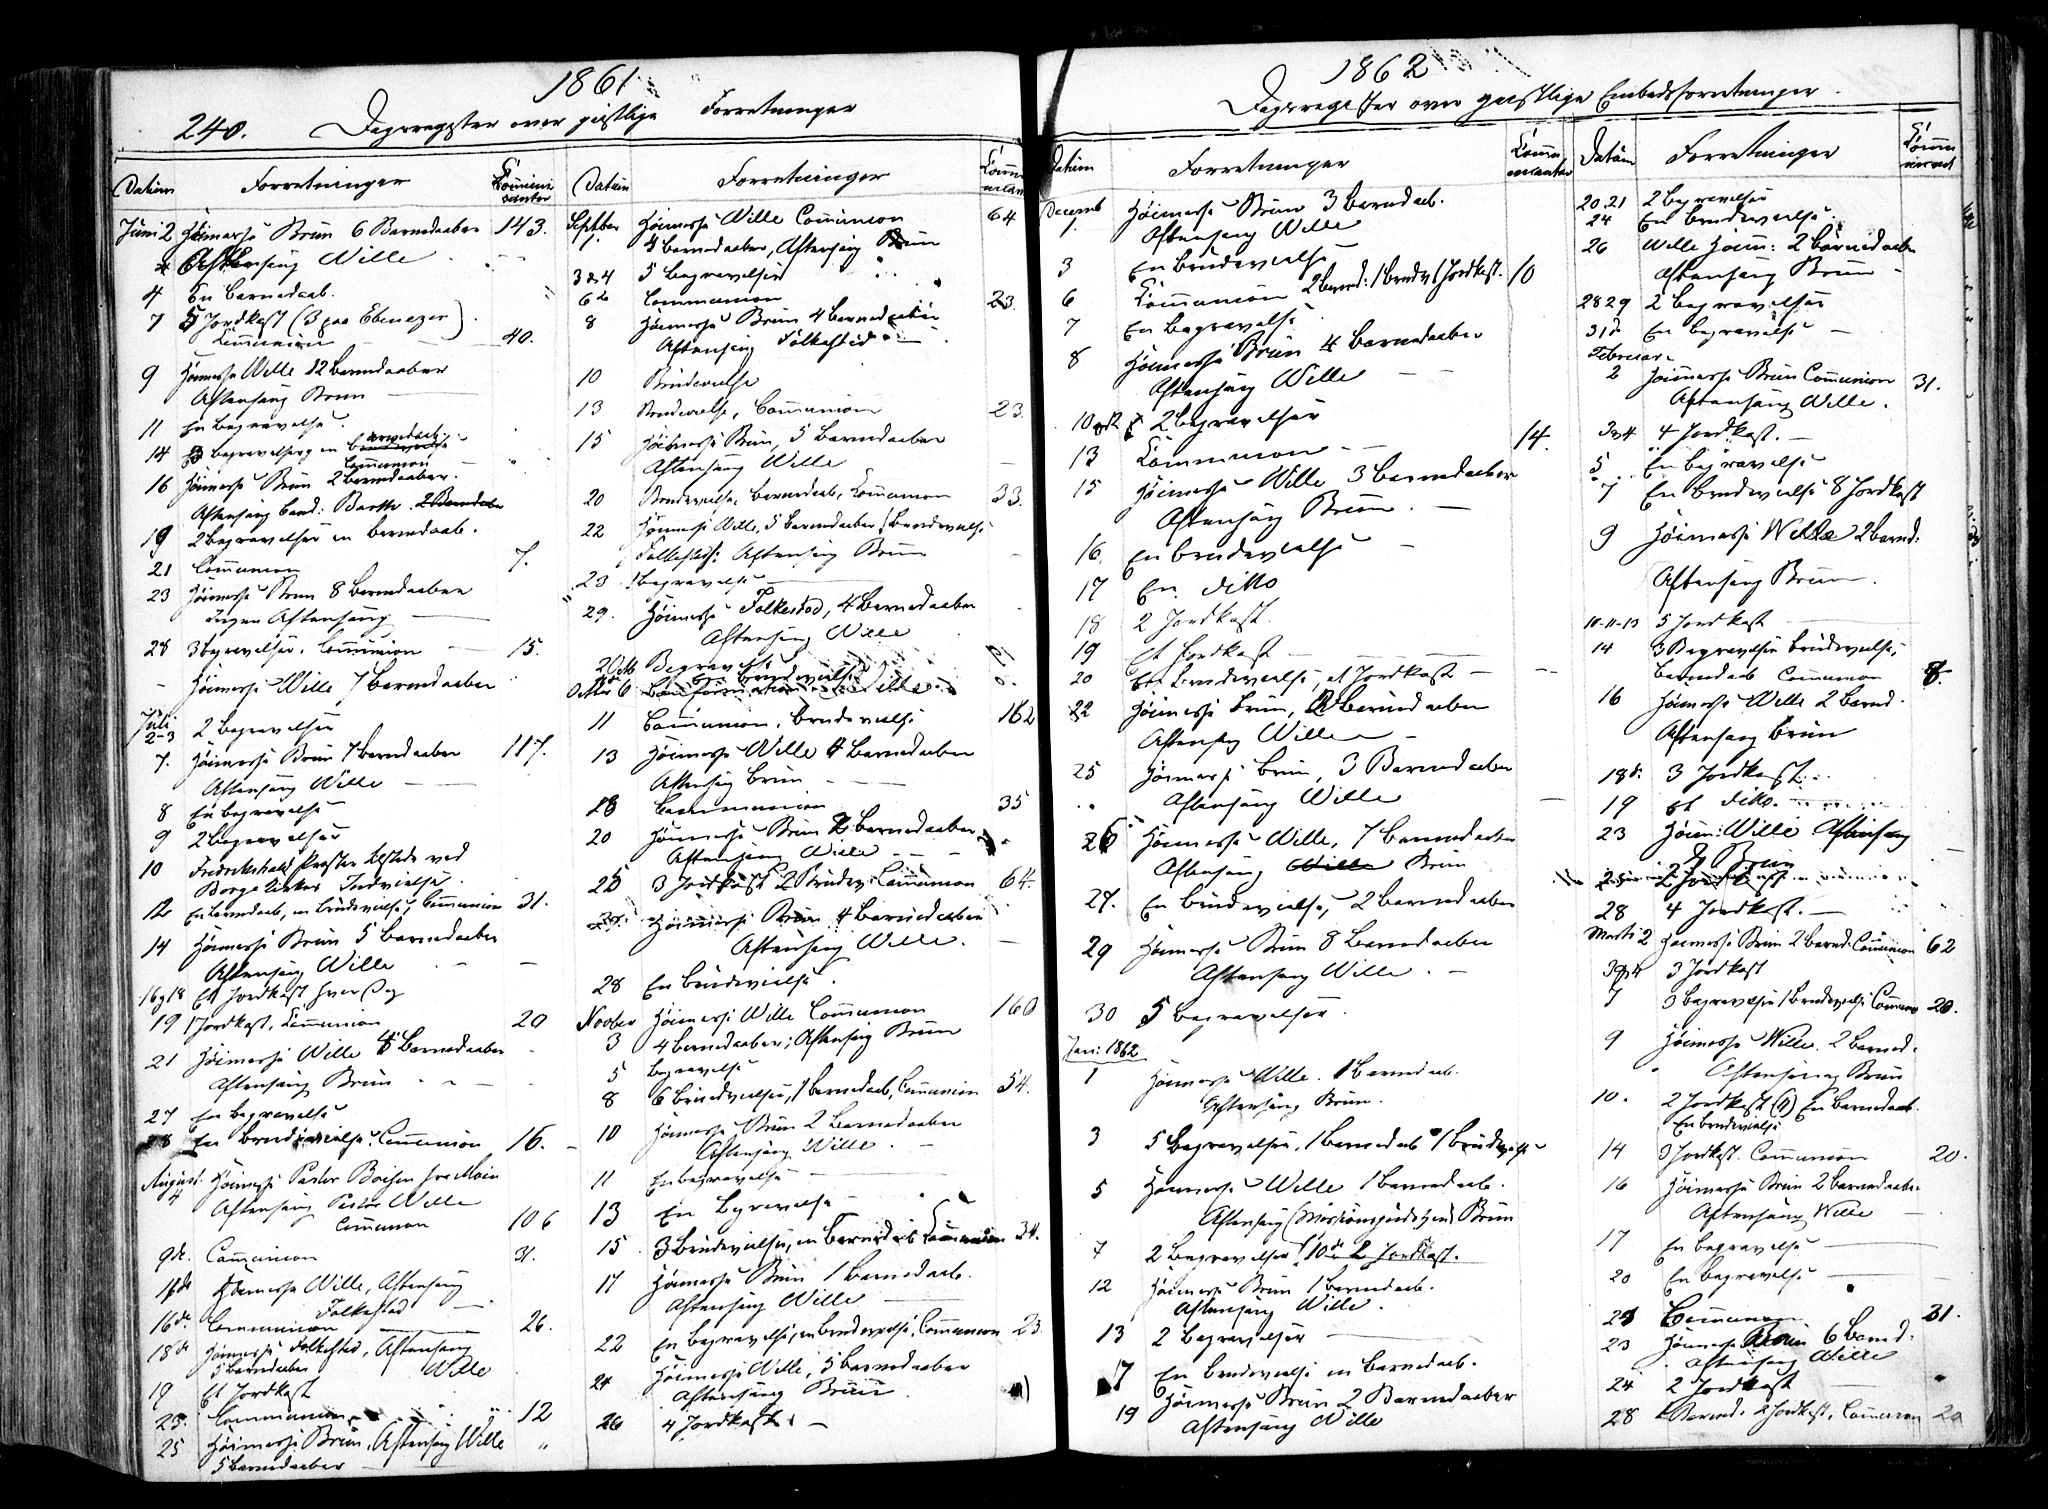 1861
240. Dagsregister over geistlige Forretninger
Datum Forretninger Communicanter
Juni 2 Høimesse Brun 6 Barnedaaber 143.
Aftensang Wille
4 En Barnedaab.
7 5 Jordkast (3 paa Ebenezer)
Communion 40.
9 Høimesse Wille 12 Barnedaaber
Aftensang Brun
11 En Begravelse.
14 3 Begravelser, en Barnedaab
Communion
16 Høimesse Brun 2 Barnedaaber.
Aftensang Cand: Barth. 2 Barnedaaber
19 2 Begravelser en Barnedaab.
21 Communion 7.
23 Høimesse Brun 8 Barnedaaber
Ingen Aftensang
28 3 Begravelser. Communion 15.
Høimesse Wille 7 Barnedaaber
Juli
2-3 2 Begravelser
7. Høimesse Brun 7 Barnedaaber 117.
Aftensang Wille
8 En Begravelse
9 2 Begravelser
10 Fredrikshald Præster tilstede ved
Borge Kirkes Indvielse.
12 En Barnedaab, en Brudevielse, Communion 31.
14 Høimesse Brun 5 Barnedaaber
Aftensang Wille
16 og 18 Et Jordkast hver Dag
19 1 Jordkast, Communion 20
21 Høimesse Wille 8 Barnedaaber
Aftensang Brun
27 En Begravelse
28 En Brudevielse. Communion 16.
August.
4 Høimesse Pastor Boisen
Aftensang Pastor Wille
Communion 106
9de Communion 31.
11te Høimesse Wille, Aftensang
Folkestad
16de Communion 26.
18de Høimesse Folkestad, Aftensang
5 Barnedaaber Wille
19 Et Jordkast
23. Communion 12
25 Høimesse Brun, Aftensang Wille
5 Barnedaaber
Datum Forretninger
Septber
1. Høimesse Wille Communion 64
4 Barnedaaber, Aftensang Brun
3 & 4 5 Begravelser
6te Communion 23.
8 Høimesse Brun 4 Barnedaaber
Aftensang Folkestad
10 Brudevielse
13 Brudevielse, Communion 23.
15 Høimesse Brun, 5 Barnedaaber
Aftensang Wille
20 Brudevielse, Barnedaab, Communion 33.
22 Høimesse Wille, 5 Barnedaaber 1 Brudevielse
Folkestad: Aftensang Brun
23 1 Begravelse
29. Høimesse Folkestad, 4 Barnedaaber
Aftensang Wille
2 Octb Begravelse
en Brudevielse
Octbr 6 Confirmation Wille
11 Communion, Brudevielse 162
13 Høimesse Wille 4 Barnedaaber
Aftensang Brun
18 Communion 35
20 Høimesse Brun 2 Barnedaaber
Aftensang Wille
25 3 Jordkast 2 Brudev. Communion 64.
27. Høimesse Brun 4 Barnedaaber
Aftensang Wille.
28 En Brudevielse.
Novber
3 Høimesse Wille Communion 160
4 Barnedaaber; Aftensang Brun
5 Begravelse
8 6 Brudevielser, 1 Barnedaab, Communion 54.
10 Høimesse Brun 2 Barnedaaber
Aftensang Wille
11 En Begravelse
13 En Begravelse
15 3 Brudevielser, en Barnedaab Communion 34.
17 Høimesse Brun 1 Barnedaab.
Aftensang Wille
22 En Begravelse, en Brudevielse, Communion 23
24 Høimesse Wille, 5 Barnedaaber
Aftensang Brun
26 4 Jordkast
1862
Dagsregister over geistlige Embedsforretninger.
Datum Forretninger
Decemb
1. Høimesse Brun 3 Barnedaab.
Aftensang Wille
3 En Brudevielse
6 Communion 2 Barned: 1 Brudev. 1 Jordkast. 10
7 En Begravelse
8 Høimesse Brun 4 Barnedaaber
Aftensang Wille
10 og 12 2 Begravelser
13 Communion 14.
15 Høimesse Wille 3 Barnedaaber
Aftensang Brun.
16. En Brudevielse
17 En Ditto
18 2 Jordkast.
19 Et Jordkast
20 En Brudevielse, et Jordkast
22 Høimesse Brun, 2 Barnedaaber
Aftensang Wille
25 Høimesse Brun, 3 Barnedaaber
Aftensang Wille
26 Høimesse Wille, 7 Barnedaaber
Aftensang Wille Brun
27. En Brudevielse, 2 Barnedaaber
29 Høimesse Brun 8 Barnedaaber
Aftensang Wille.
30 5 Begravelser.
Jan: 1862
1 Høimesse Wille. 1 Barnedaab.
Aftensang Brun.
3 5 Begravelser, 1 Barnedaab 1 Brudevielse
5 Høimesse Wille 1 Barnedaab.
Aftensang (Missionsgudstjen) Brun
7 2 Begravelser (10de 2 Jordkast.
12 Høimesse Brun 1 Barnedaab.
Aftensang Wille.
13 2 Begravelser
17 En Brudevielse en Barnedaab.
19 Høimesse Brun 2 Barnedaaber
Aftensang Wille
Datum Forretninger
20. 21 2 Begravelser
24 En Brudevielse.
26 Wille Høim: 2 Barnedaaber
Aftensang Brun
28 29 2 Begravelser
31de En Begravelse
Februar
2 Høimesse Brun Communion 31.
Aftensang Wille.
3 og 4 4 Jordkast.
5 En Begravelse
7 En Brudevielse 8 Jordkast
9 Høimesse Wille 2 Barned.
Aftensang Brun.
10-11-13 5 Jordkast
14 3 Begravelser Brudevielse,
Barnedaab Communion 8.
16 Høimesse Wille 2 Barned.
Aftensang Brun
18de 3 Jordkast
19 Et Ditto.
23 Høim: Wille Aftensang
Brun
25 2 Jordkast
28 4 Jordkast.
Marti 2 Høimesse Brun 2 Barned. Communion 62
3 og 4 3 Jordkast
7 3 Begravelser 1 Brudevielse Communion 20.
9 Høimesse Wille. 2 Barned.
Aftensang Brun
10. 2 Jordkast En Barnedaab.
En Brudevielse
14 3 Jordkast. Communion 20.
16 Høimesse Brun 2 Barnedaaber
Aftensang Wille
17 En Begravelse
20 En Begravelse
21 Communion 31.
23 Høimesse Brun 6 Barned.
Aftensang Wille
24 2 Jordkast
28 Barned. 2 Jordkast, Communion 20